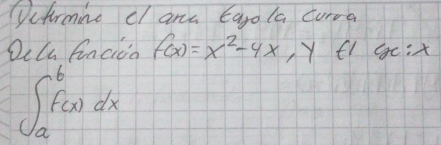 Determine el area bajo la curva
De la función f(x) = x² - 4x, y el eje: x
∫ₐᵇ f(x) dx